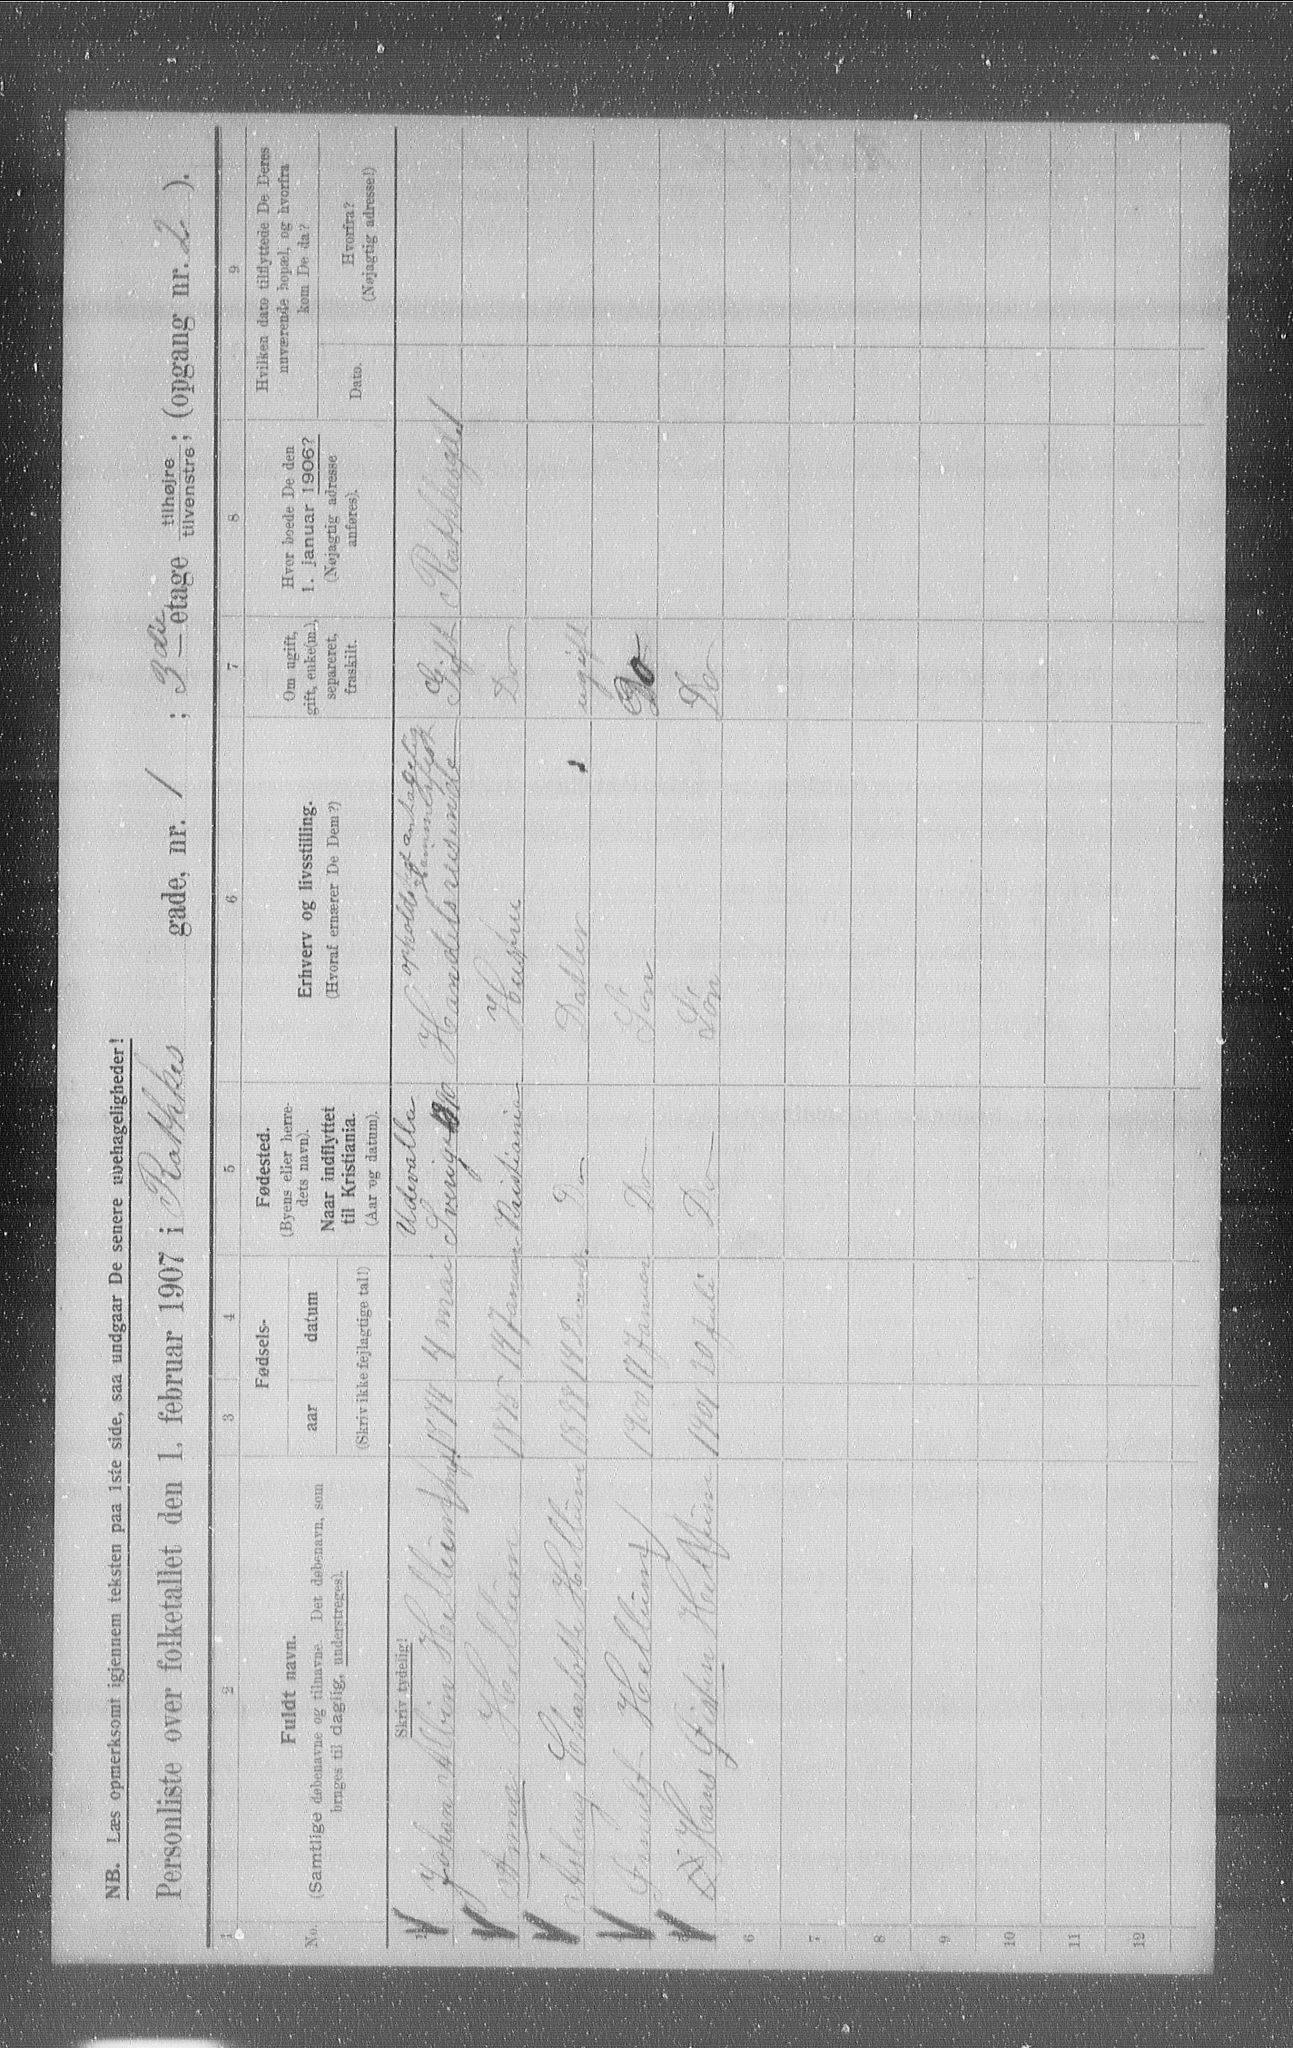 NB. Læs opmerksomt igjennem teksten paa 1ste side, saa undgaar De senere ubehageligheder!
Personliste over folketallet den 1. februar 1907 i Rathkes gade, nr. 1 ; 3die etage tilhøjre tilvenstre; (opgang nr. 2 ).
1 2 3 4 5 6 7 8 9
No.
Fuldt navn.
(Samtlige døbenavne og tilnavne. Det døbenavn, som
bruges til daglig, understreges).
Fødsels-
aar datum
(Skriv ikke fejlagtige tal!)
Fødested.
(Byens eller herre-
dets navn).
Naar indflyttet
til Kristiania.
(Aar og datum).
Erhverv og livsstilling.
(Hvoraf ernærer De Dem?)
Om ugift,
gift, enke(m.),
separeret,
fraskilt.
Hvor boede De den
1. januar 1906?
(Nøjagtig adresse
anføres).
Hvilken dato tilflyttede De Deres
nuværende bopæl, og hvorfra
kom De da?
Dato.
Hvorfra?
(Nøjagtig adresse!)
Skriv tydelig!
Udevalla
1 Johan Albin Hellum 1874 4 mai Sverig Handelsreisende Gift Rathkesgd. 1
2 Anna Hellum 1875 14 Januar Kristiania Hustru Do
3 Aslaug Charlotte Hellum 1898 14 Decemb. Do Datter ugift
4 Hellum 1900 17 Januar Do Søn Do
5 Hans Hellum 1901 20 Juli Do Søn Do
6
7
8
9
10
11
12